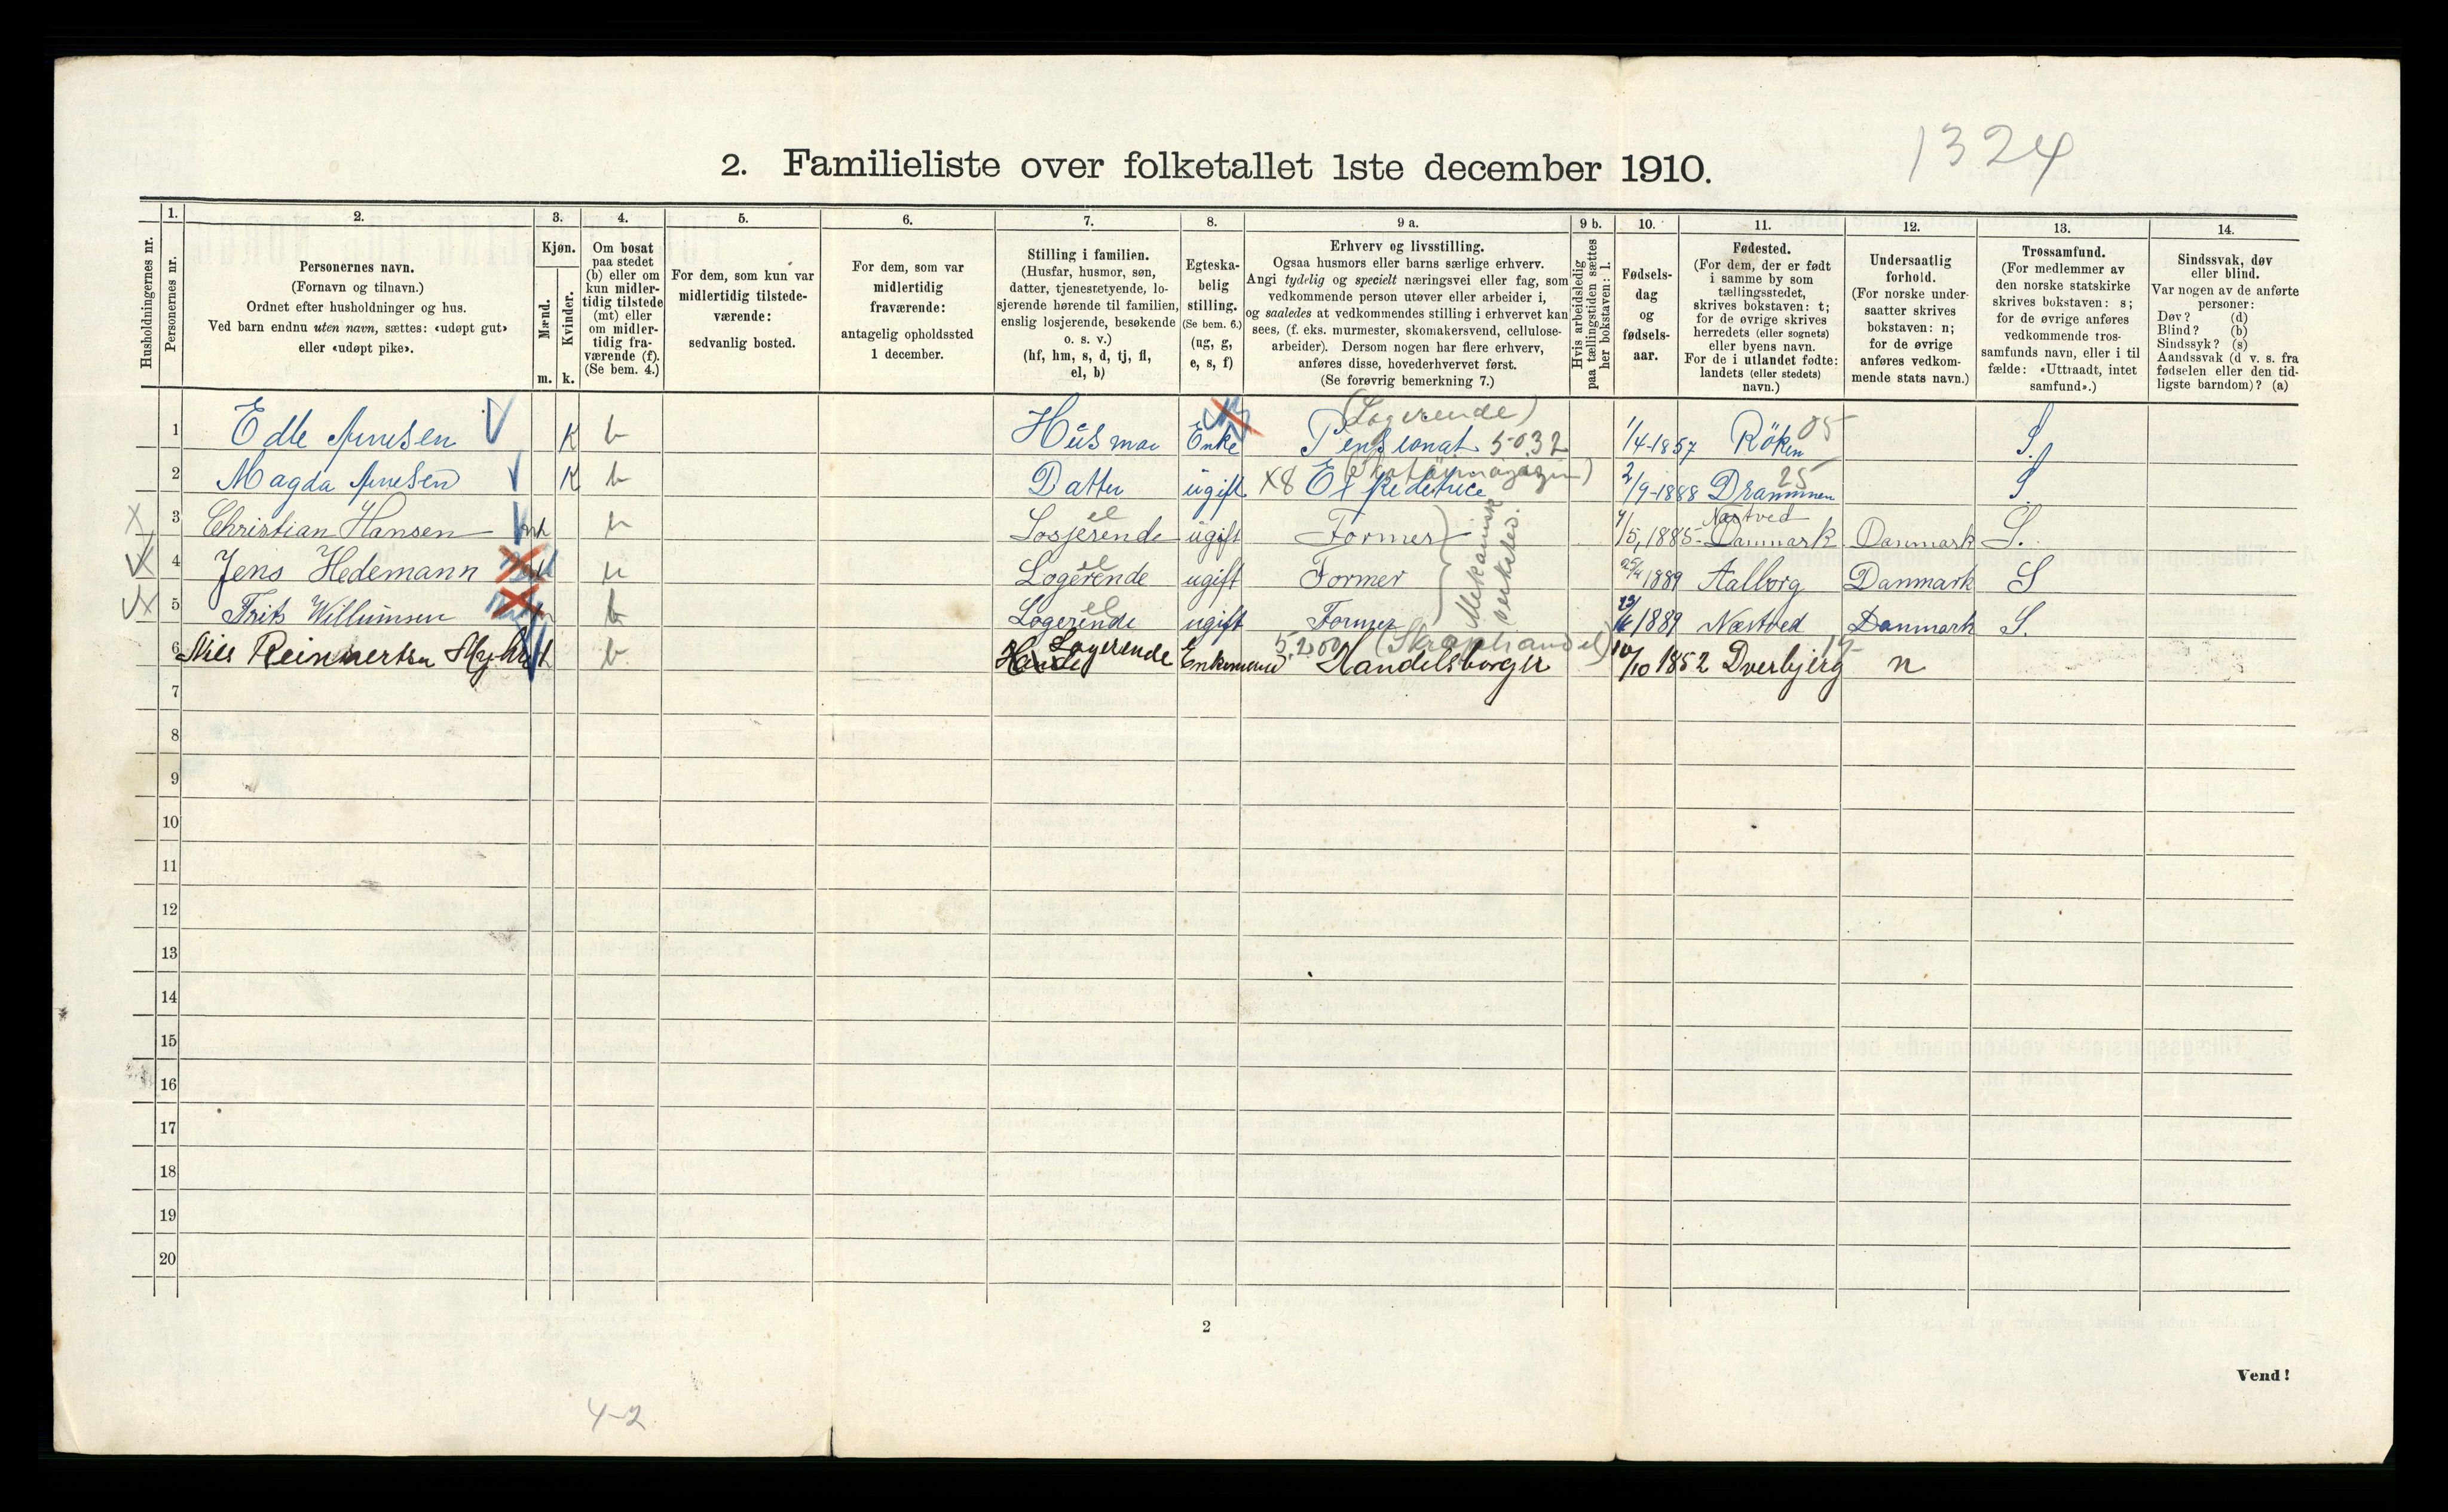 1324
2. Familieliste over folketallet 1ste december 1910.
Husholdningernes nr.
1.
Personernes nr.
2.
Personernes navn.
(Fornavn og tilnavn.)
Ordnet efter husholdninger og hus.
Ved barn endnu uten navn, sættes: «udøpt gut»
eller «udøpt pike».
3.
Kjøn.
Mænd.
Kvinder.
m.
k.
4.
Om bosat
paa stedet
(b) eller om
kun midler-
tidig tilstede
(mt) eller
om midler-
tidig fra-
værende (f).
(Se bem. 4.)
5.
For dem, som kun var
midlertidig tilstede-
værende:
sedvanlig bosted.
6.
For dem, som var
midlertidig
fraværende:
antagelig opholdssted
1 december.
7.
Stilling i familien.
(Husfar, husmor, søn,
datter, tjenestetyende, lo-
sjerende hørende til familien,
enslig losjerende, besøkende
o. s. v.)
(hf, hm, s, d, tj, fl,
el, b)
8.
Egteska-
belig
stilling.
(Se bem. 6.)
(ug, g,
e, s, f)
9 a.
Erhverv og livsstilling.
Ogsaa husmors eller barns særlige erhverv.
Angi tydelig og specielt næringsvei eller fag, som
vedkommende person utøver eller arbeider i,
og saaledes at vedkommendes stilling i erhvervet kan
sees, (f. eks. murmester, skomakersvend, cellulose-
arbeider). Dersom nogen har flere erhverv,
anføres disse, hovederhvervet først.
(Se forøvrig bemerkning 7.)
9 b.
Hvis arbeidsledig
paa tællingstiden sættes
her bokstaven: l.
10.
Fødsels-
dag
og
fødsels-
aar.
11.
Fødested.
(For dem, der er født
i samme by som
tællingsstedet,
skrives bokstaven: t;
for de øvrige skrives
herredets (eller sognets)
eller byens navn.
For de i utlandet fødte:
landets (eller stedets)
navn.)
12.
Undersaatlig
forhold.
(For norske under-
saatter skrives
bokstaven: n;
for de øvrige
anføres vedkom-
mende stats navn.)
13.
Trossamfund.
(For medlemmer av
den norske statskirke
skrives bokstaven: s;
for de øvrige anføres
vedkommende tros-
samfunds navn, eller i til
fælde: «Uttraadt, intet
samfund».)
14.
Sindssvak, døv
eller blind.
Var nogen av de anførte
personer:
Døv? (d)
Blind? (b)
Sindssyk? (s)
Aandssvak (d v. s. fra
fødselen eller den tid-
ligste barndom)? (a)
1 Edle Arnesen K b Husmor Enke (Logerende) Pensionat 5032 1/4-1857 Röken 05 S.
2 Magda Arnesen K b Datter ugift X8 Expeditrice 2/9-1888 Drammen 25 S.
X 3 Christian Hansen m b Losjerende el ugift Former 4/5, 1885- Næstved Danmark Danmark S.
X 4 Jens Hedemann b Logerende el ugift Former 25/4 1889 Aalborg Danmark S
X 5 Frits Willumsen b Logerende el ugift Former 1889 Næstved Danmark S.
Mekanisk verksted.
6 Nils Reinnertsen b Logerende Enkemand 5.200 (Skraphandel) Handelsborger 10/10 1852 Dverbjerg n
7
8
9
10
11
12
13
14
15
16
17
18
19
20
2
Vend!
4-2